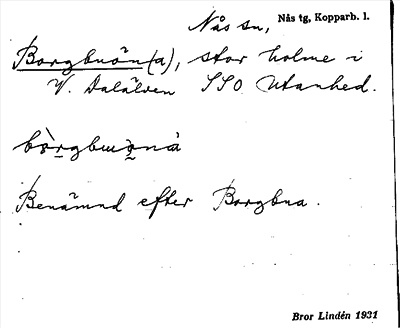 Nås sn, Nås tg, Kopparb. l.
Borgbuön(a), stor holme i
V. Dalälven SSO Utanhed.
Benämnd efter Borgbua.
Bror Lindén 1931